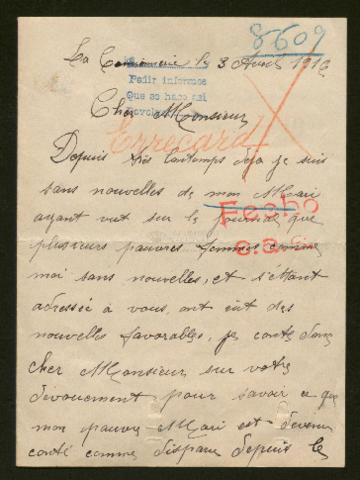 8609
La le 3 Avril 1916
Pedir informes
Que se haga asi
Cher Monsieur
Errecard
Depuis très lontemps déja je suis
sans nouvelles de mon Mari
ayant vut sur le journal que
Fecho
plusieurs pauvres femmes comme
c.a.
moi sans nouvelles, et s'étant
adressée à vous, ont eut des
nouvelles favorables, je conte donc
cher Monsieur sur votre
dévouement pour savoir ce que
mon pauvre Mari est devenu
conté comme disparu depuis le